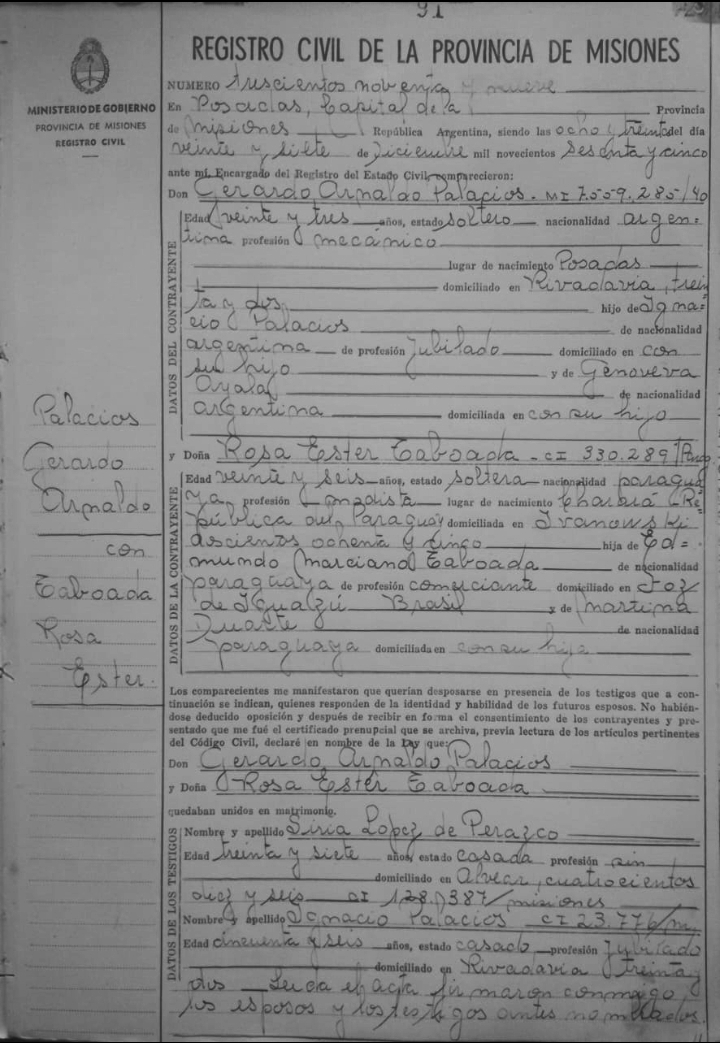 91
REGISTRO CIVIL DE LA PROVINCIA DE MISIONES
MINISTERIO DE GOBIERNO
PROVINCIA DE MISIONES
REGISTRO CIVIL
NUMERO trescientos noventa y nueve
En Posadas, Capital de la Provincia
de Misiones República Argentina, siendo las ocho y treinta del día
veinte y siete de Diciembre mil novecientos sesenta y cinco
ante mí, Encargado del Registro del Estado Civil, comparecieron:
Don Gerardo Arnaldo Palacios. MI 7.559.285/40
DATOS DEL CONTRAYENTE
Edad veinte y tres años, estado soltero nacionalidad argen=
tina profesión mecánico
lugar de nacimiento Posadas
domiciliado en Rivadavia, trein
ta y dos hijo de Igna=
cio Palacios de nacionalidad
argentina de profesión Jubilado domiciliado en con
su hijo y de Genoveva
Ayala de nacionalidad
argentina domiciliada en con su hijo
y Doña Rosa Ester Taboada - CI 330.289
DATOS DE LA CONTRAYENTE
Edad veinte y seis años, estado soltera nacionalidad paragua
ya profesión modista lugar de nacimiento Charará - Re
pública del Paraguay domiciliada en Ivanowski
doscientos ochenta y cinco hija de Ed=
mundo Marciano Taboada de nacionalidad
paraguaya de profesión comerciante domiciliado en Foz
de Iguazú Brasil y de Martina
Duarte de nacionalidad
paraguaya domiciliada en con su hija
Palacios
Gerardo
Arnaldo
con
Taboada
Rosa
Ester.
Los comparecientes me manifestaron que querían desposarse en presencia de los testigos que a con-
tinuación se indican, quienes responden de la identidad y habilidad de los futuros esposos. No habién-
dose deducido oposición y después de recibir en forma el consentimiento de los contrayentes y pre-
sentado que me fué el certificado prenupcial que se archiva, previa lectura de los artículos pertinentes
del Código Civil, declaré en nombre de la Ley que:
Don Gerardo Arnaldo Palacios
y Doña Rosa Ester Taboada
quedaban unidos en matrimonio.
DATOS DE LOS TESTIGOS
Nombre y apellido Siria Lopez de Perazco
Edad treinta y siete años, estado casada profesión sin
domiciliado en Alvear, cuatrocientos
diez y seis CI 128.387/misiones
Nombre y apellido Ignacio Palacios, CI 23.776/m
Edad cincuenta y seis años, estado casado profesión Jubilado
domiciliado en Rivadavia treinta y
dos Leída el acta firmaron conmigo,
los esposos y los testigos antes nombrados.